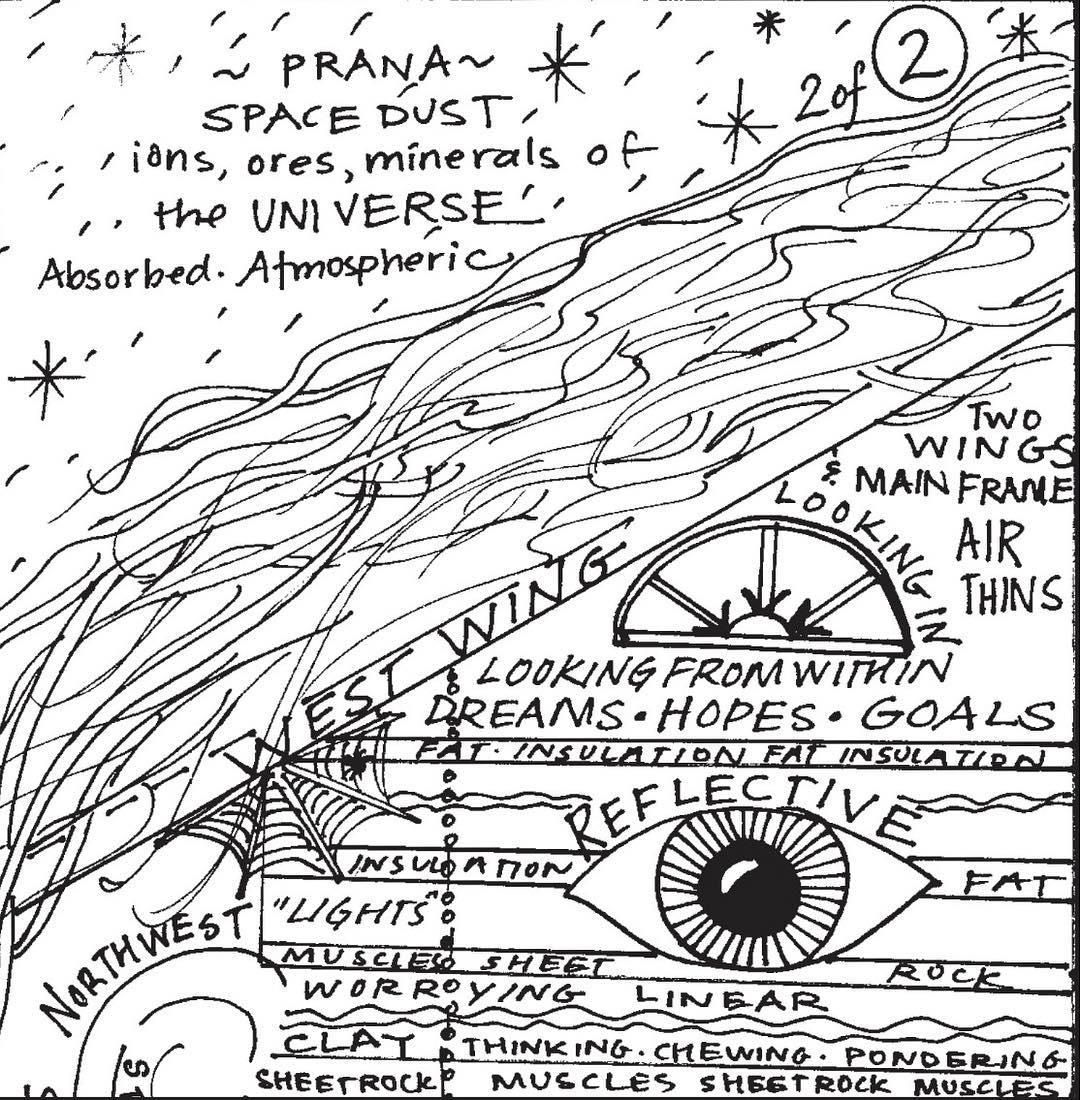 ~ PRANA ~
2 of 2
SPACE DUST
ions, ores, minerals of
the UNIVERSE
Absorbed. Atmospheric
TWO
WINGS
& MAIN FRAME
AIR
THINS
LOOKING IN
WEST WING
LOOKING FROM WITHIN
DREAMS • HOPES • GOALS
FAT • INSULATION FAT INSULATION
REFLECTIVE
INSULATION
FAT
"LIGHTS"
NORTHWEST
MUSCLES SHEET
ROCK
WORROYING LINEAR
CLAY THINKING • CHEWING • PONDERING
SHEETROCK MUSCLES SHEETROCK MUSCLES